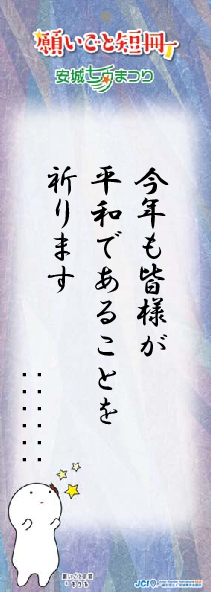 願いごと短冊
安城七夕まつり
今年も皆様が
平和であることを
祈ります
・・・・・・
願いごと短冊
JCI